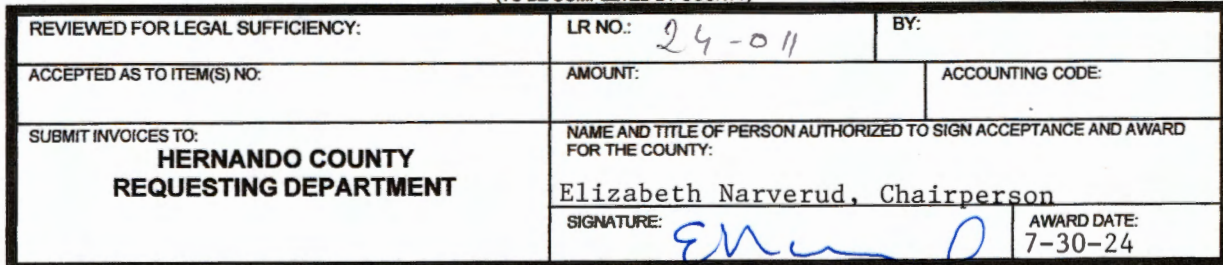 REVIEWED FOR LEGAL SUFFICIENCY:
LR NO.: 24-011
BY:
ACCEPTED AS TO ITEM(S) NO:
AMOUNT:
ACCOUNTING CODE:
SUBMIT INVOICES TO:
HERNANDO COUNTY
REQUESTING DEPARTMENT
NAME AND TITLE OF PERSON AUTHORIZED TO SIGN ACCEPTANCE AND AWARD
FOR THE COUNTY:
Elizabeth Narverud, Chairperson
SIGNATURE:
AWARD DATE:
7-30-24